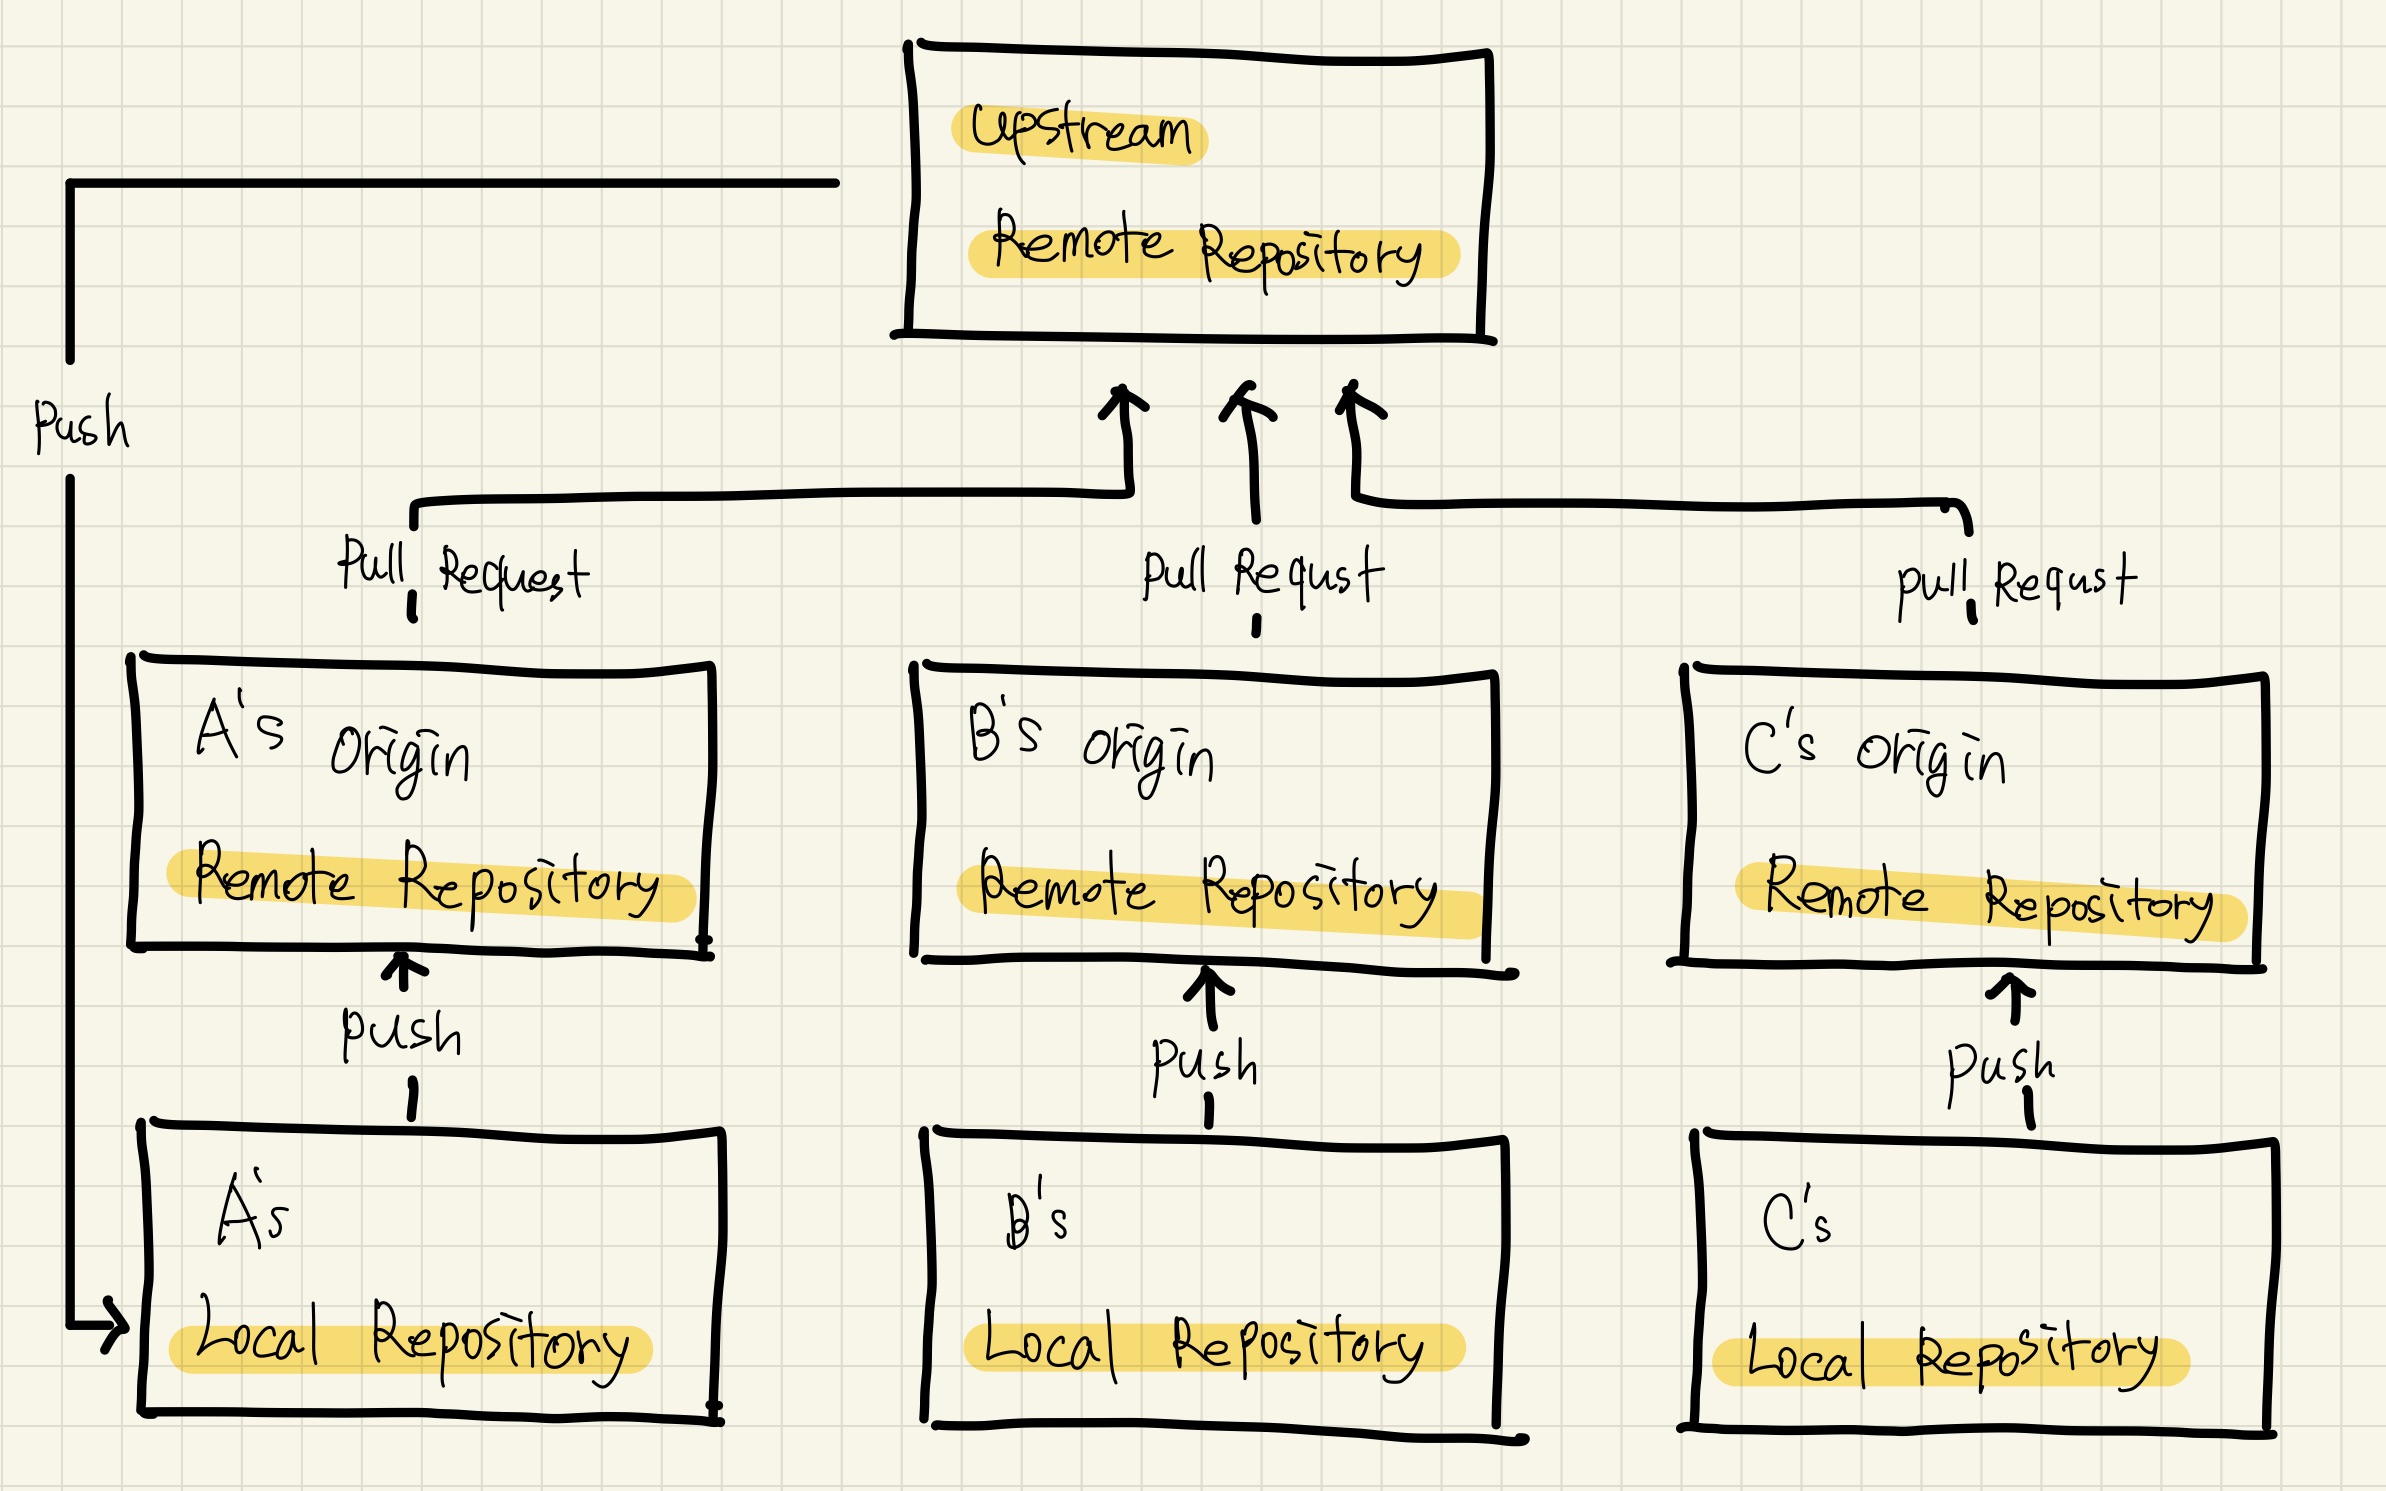 Upstream
Remote Repository
Push
Pull Request
Pull Requst
Pull Requst
A's origin
Remote Repository
B's origin
Remote Repository
C's origin
Remote Repository
push
Push
Push
A's
Local Repository
B's
Local Repository
C's
Local Repository